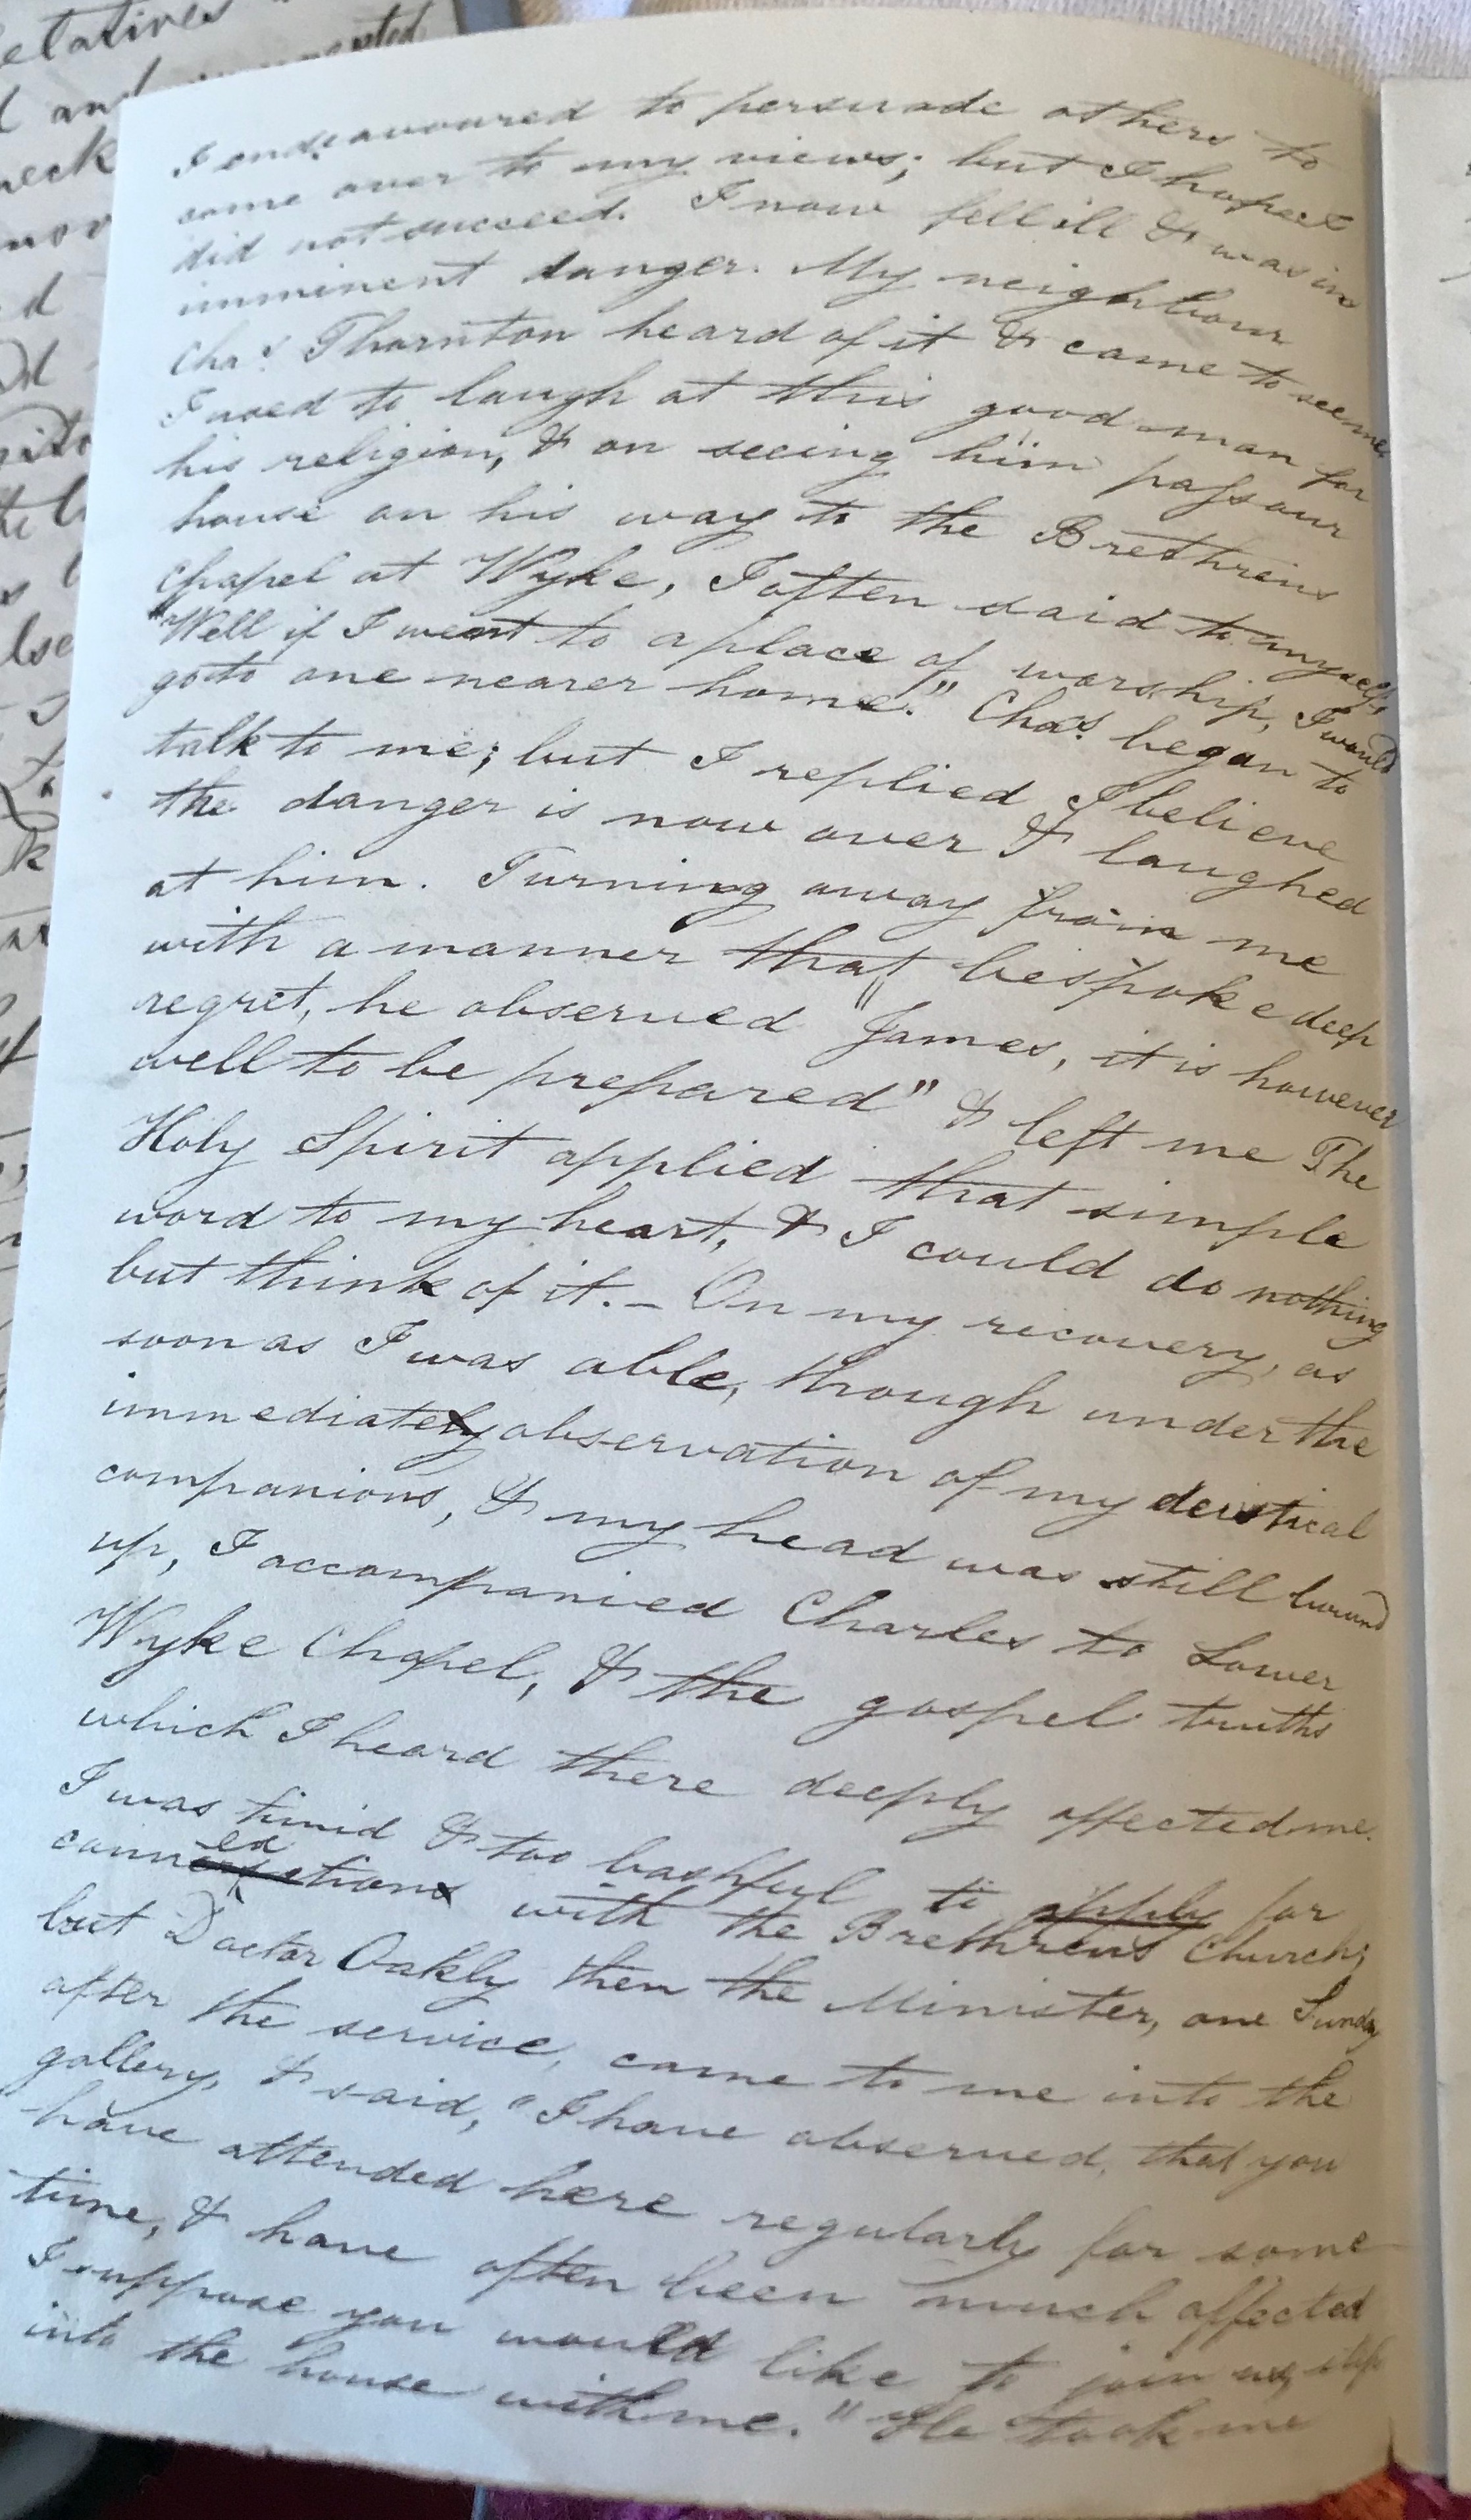 I endeavoured to persuade others to
come over to my views; but I hope I
did not succeed. I now fell ill & was in
imminent danger. My neighbour
Chas. Thornton heard of it & came to see me.
I used to laugh at this good man for
his religion, & on seeing him pass our
house on his way to the Brethrens
Chapel at Wyke, I often said to myself,
"Well if I went to a place of worship, I would
go to one nearer home." Chas. began to
talk to me; but I replied I believe
the danger is now over & laughed
at him. Turning away from me
with a manner that bespoke deep
regret, he observed "James, it is however
well to be prepared" & left me The
Holy Spirit applied that simple
word to my heart, & I could do nothing
but think of it. – On my recovery, as
soon as I was able, through under the
immediately observation of my deistical
companions, & my head was still bound
up, I accompanied Charles to Lower
Wyke Chapel, & the gospel truths
which I heard there deeply affected me.
I was timid & too bashful to apply for
connection with the Brethrens Church;
but Doctor Oakly then the Minister, one Sunday
after the service, came to me into the
gallery, & said, "I have observed, that you
have attended here regularly for some
time, & have often been much affected
I suppose you would like to join us, step
into the house with me." He took me
etatives
d and
neck